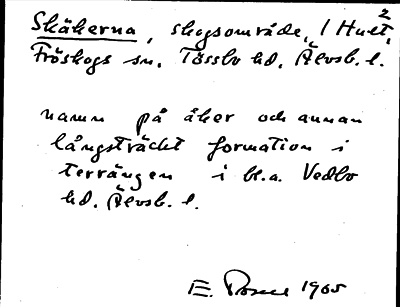 Skäkerna, skogsområde, 1 Hult 2,
Fröskogs sn. Tössbo hd. Älvsb. l.
namn på åker och annan
långsträckt formation i
terrängen i bl.a. Vedbo
hd. Älvsb. l.
E. 1965